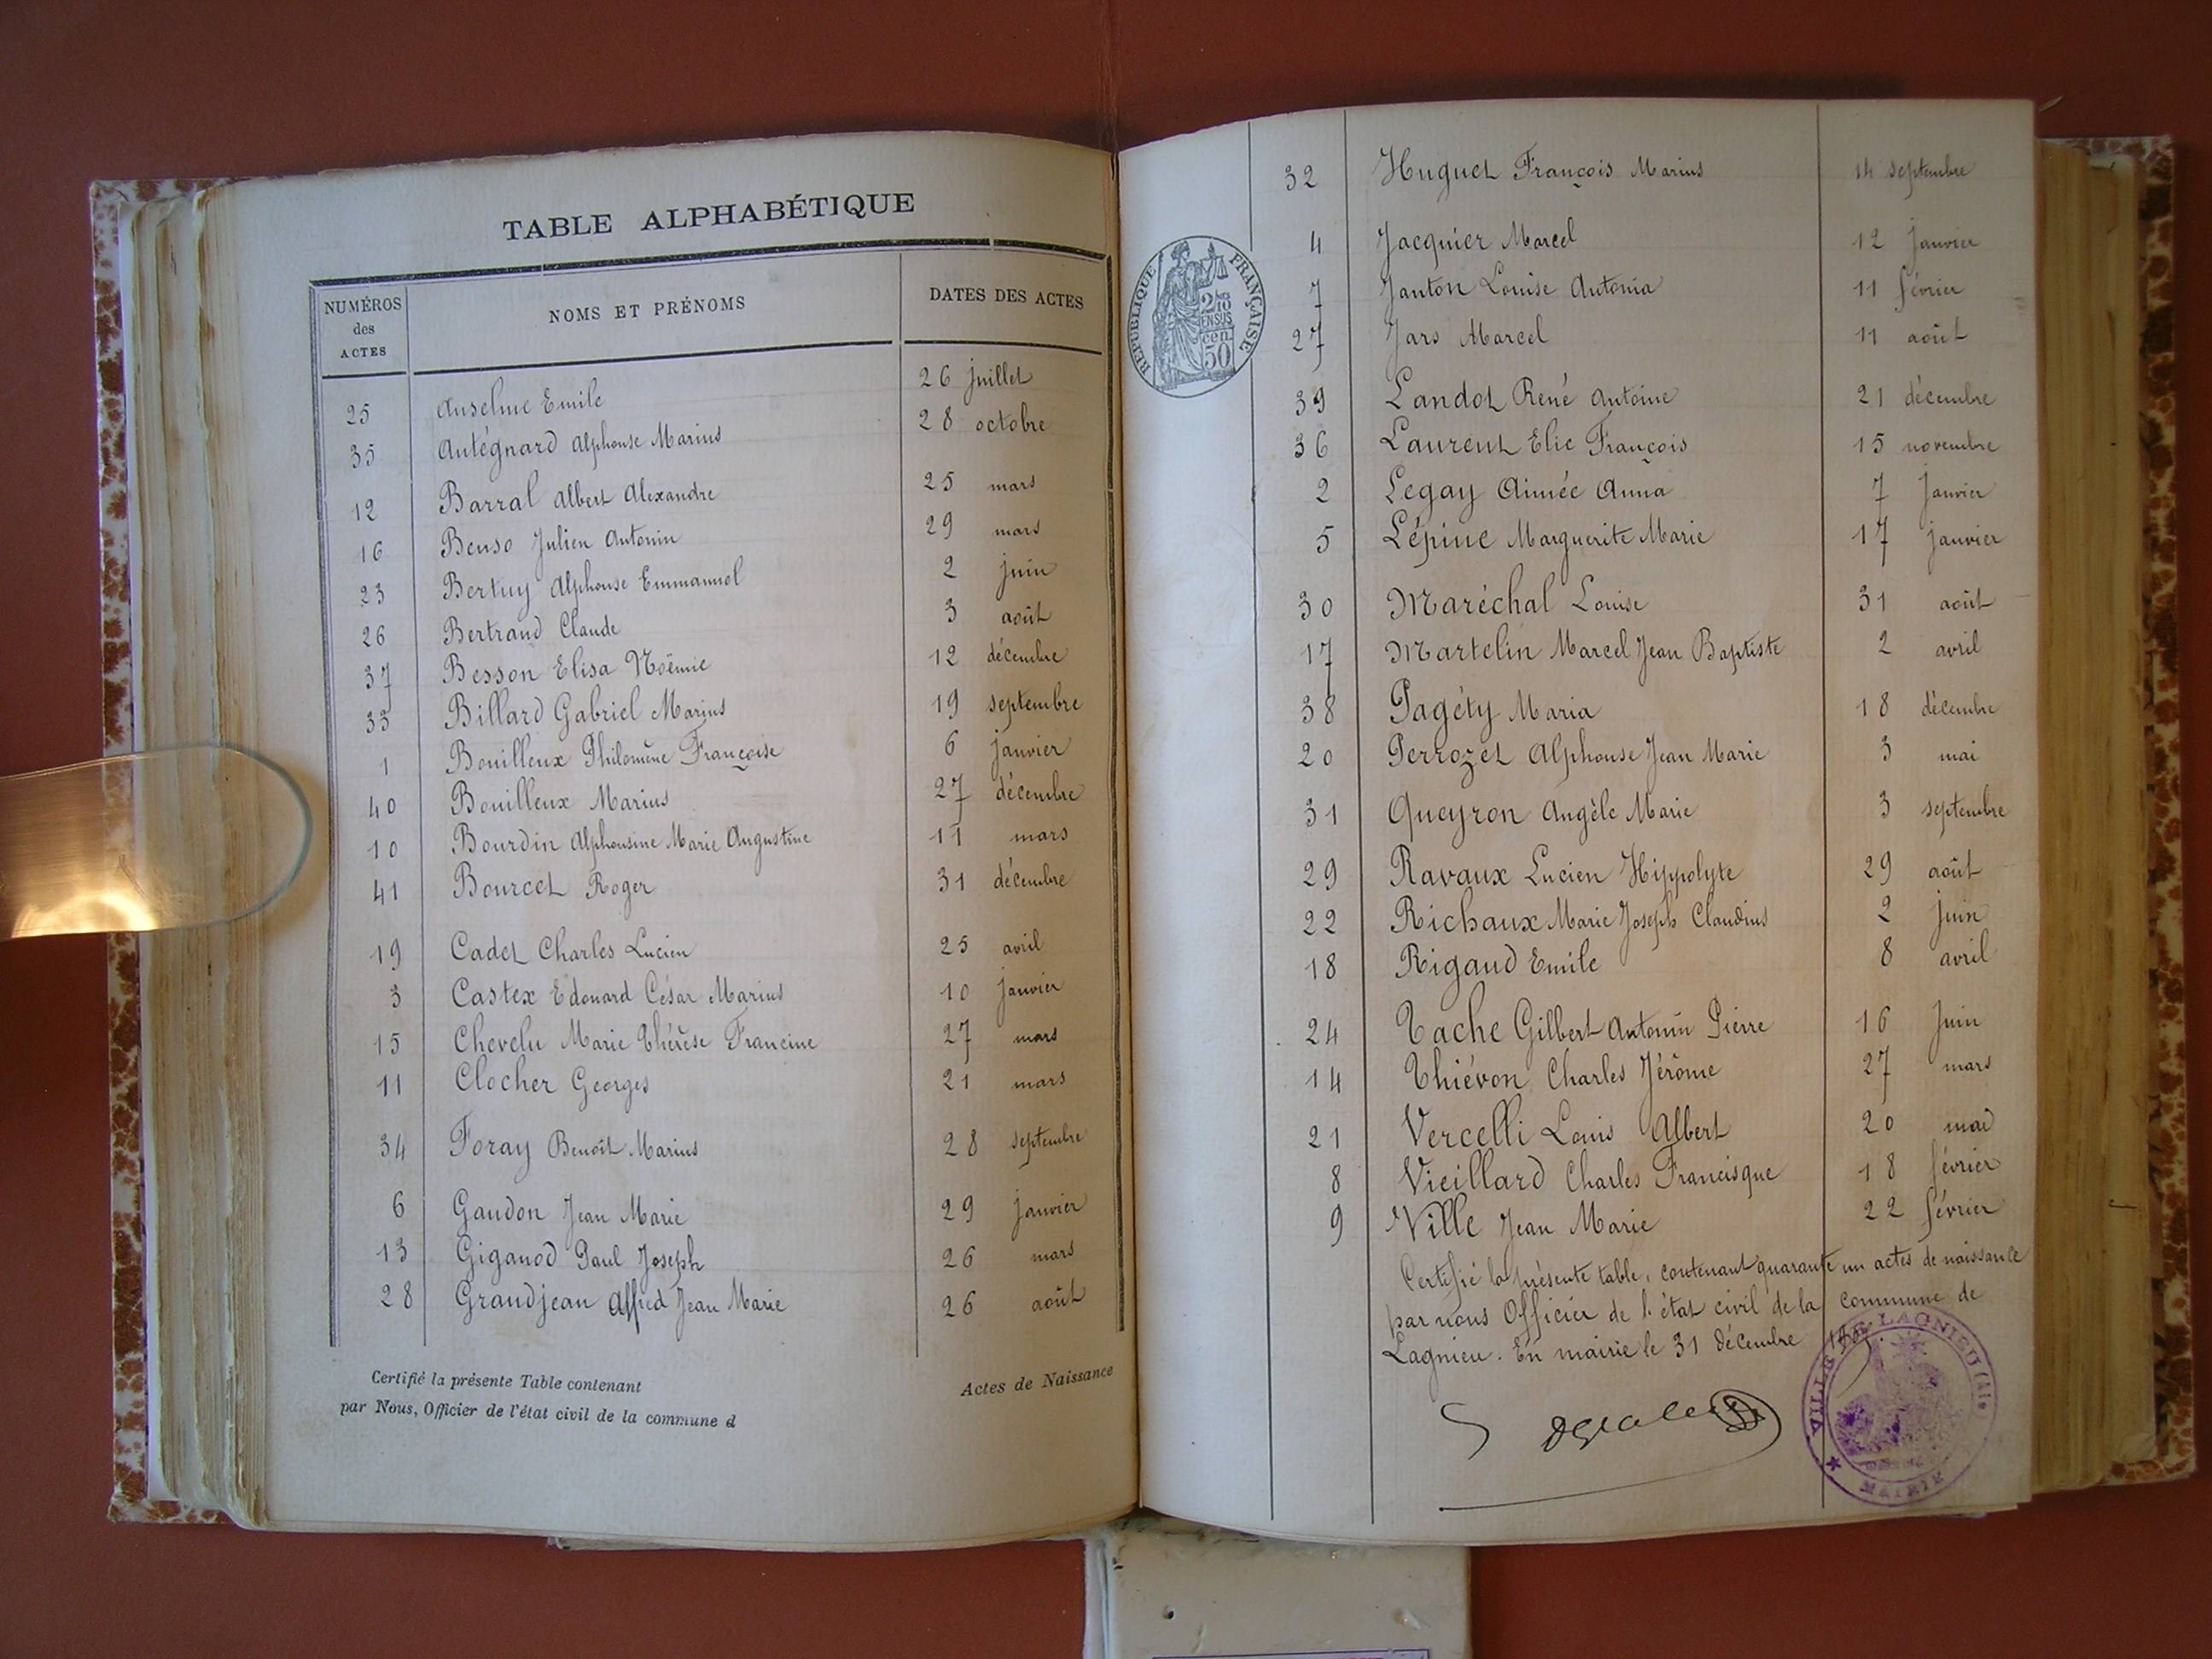 TABLE ALPHABÉTIQUE
NUMÉROS des ACTES NOMS ET PRÉNOMS DATES DES ACTES
25 Anselme Emile 26 juillet
35 Antégnard Alphonse Marius 28 octobre
12 Barral Albert Alexandre 25 mars
16 Benso Julien Antonin 29 mars
23 Bertuy Alphonse Emmanuel 2 juin
26 Bertrand Claude 3 août
37 Besson Elisa Noëmie 12 décembre
33 Billard Gabriel Marius 19 septembre
1 Bouilloux Philomène Françoise 6 janvier
40 Bouilloux Marius 27 décembre
10 Bourdin Alphonsine Marie Augustine 11 mars
41 Bourcet Roger 31 décembre
19 Cadet Charles Lucien 25 avril
3 Castex Edouard César Marius 10 janvier
15 Chevelu Marie Thérèse Francine 27 mars
11 Clocher Georges 21 mars
34 Foray Benoît Marius 28 septembre
6 Gaudon Jean Marie 29 janvier
13 Giganod Paul Joseph 26 mars
28 Grandjean Alfred Jean Marie 26 août
Certifié la présente Table contenant Actes de Naissance
par Nous, Officier de l'état civil de la commune d
RÉPUBLIQUE FRANÇAISE
2/10 EN SUS
50 cen.
32 Huguet François Marius 14 septembre
4 Jacquier Marcel 12 janvier
7 Janton Louise Antonia 11 février
27 Jars Marcel 11 août
39 Landot René Antoine 21 décembre
36 Laurent Elie François 15 novembre
2 Legay Aimée Anna 7 janvier
5 Lépine Marguerite Marie 17 janvier
30 Maréchal Louise 31 août
17 Martelin Marcel Jean Baptiste 2 avril
38 Pagéty Maria 18 décembre
20 Perrozet Alphonse Jean Marie 3 mai
31 Queyron Angèle Marie 3 septembre
29 Ravaux Lucien Hippolyte 29 août
22 Richaux Marie Joseph Claudius 2 juin
18 Rigaud Emile 8 avril
24 Tache Gilbert Antonin Pierre 16 Juin
14 Thiévon Charles Jérôme 27 mars
21 Vercelli Louis Albert 20 mai
8 Vieillard Charles Francisque 18 février
9 Ville Jean Marie 22 février
Certifié la présente table, contenant quarante un actes de naissance
par nous Officier de l'état civil de la commune de
Lagnieu. En mairie le 31 décembre
VILLE DE LAGNIEU (Ain)
MAIRIE